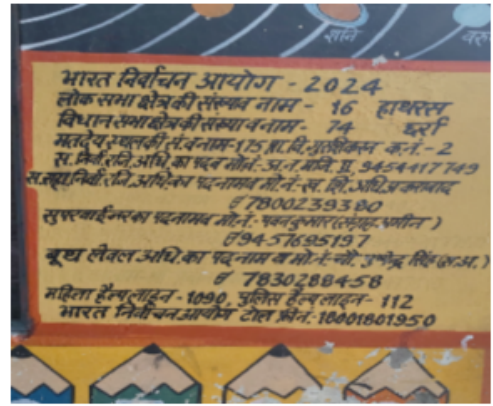 शनि
भारत निर्वाचन आयोग - 2024
लोक सभा क्षेत्र की संख्या व नाम - 16 हाथरस
विधान सभा क्षेत्र की संख्या व नाम - 74 छर्रा
मतदेय स्थल की सं. व नाम - 175 प्रा. वि. क.नं. - 2
स. निर्वा. रजि. अधि. का पदव मो.नं. II, 9454417749
स. सहा. निर्वा. रजि. अधि. का पदनाम व मो.नं. - ख. शि. अधि.
7800239380
सुपरवाईजर का पदनाम व मो.नं. पवन कुमार (संग्रह अमीन)
9457695197
बूथ लेवल अधि. का पदनाम व मो.नं. सिंह (स.अ.)
7830288458
महिला हैल्प लाइन - 1090, पुलिस हैल्प लाइन - 112
भारत निर्वाचन आयोग टोल फ्री नं. - 18001801950